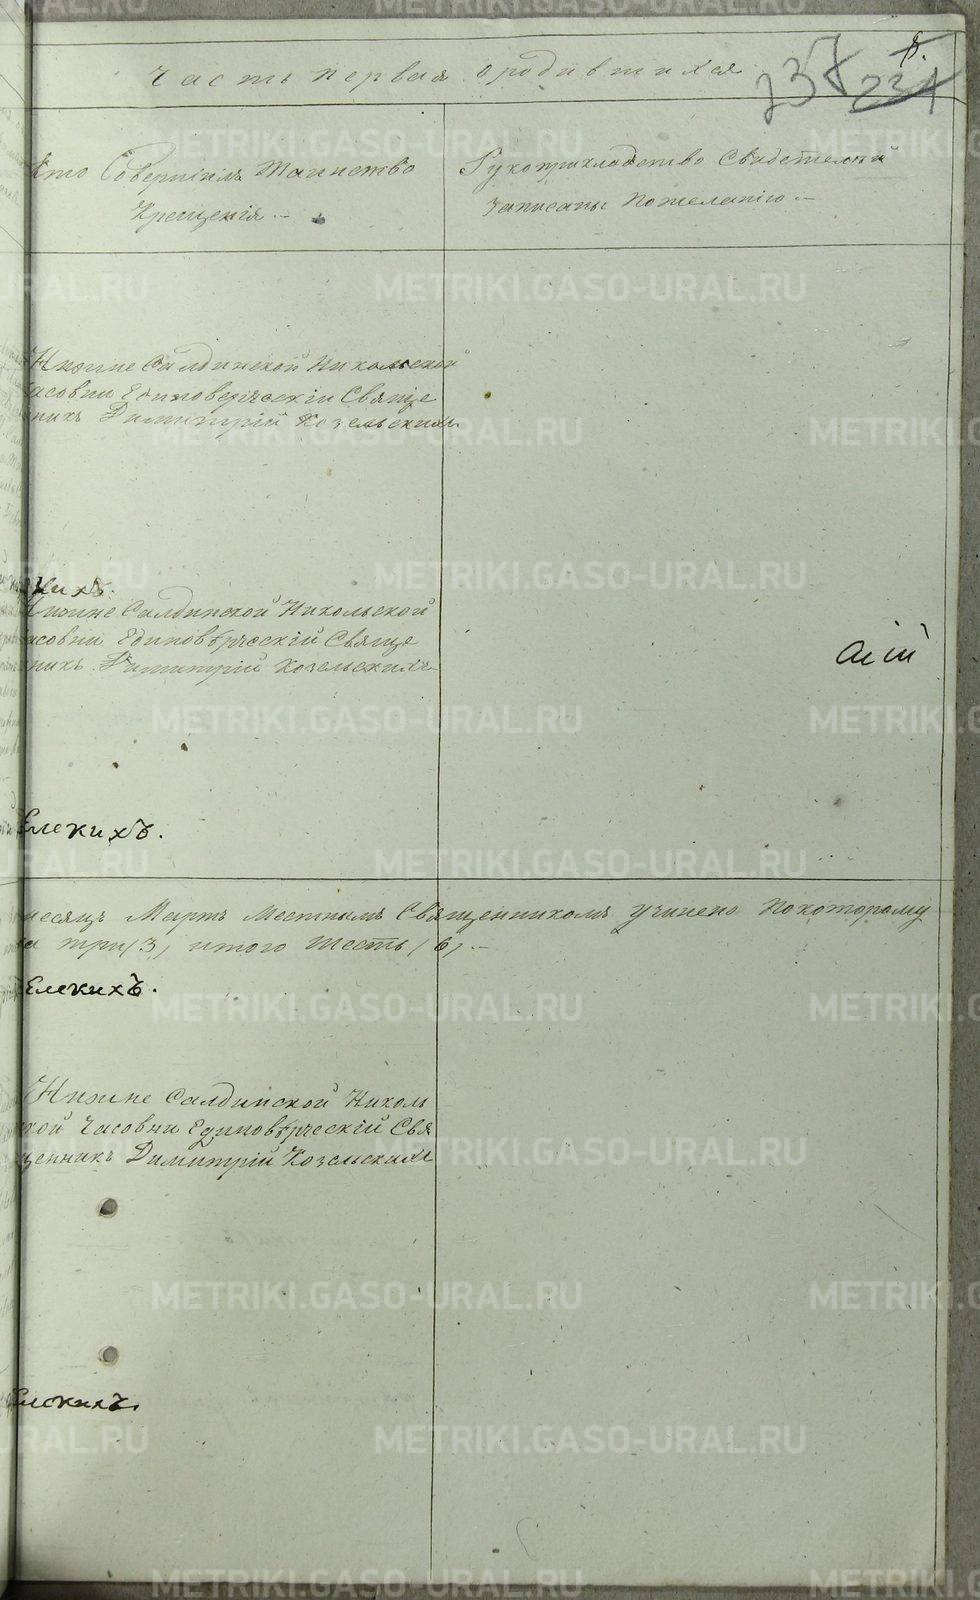 Часть первая о родившихся
8.
237 221
Кто Совершилъ Таинство
Крещенія. –
Рукоприкладство Свидетелей
записаны по желанію –
Нижне Салдинской Никольской
часовни Единоверческій Свяще
никъ Димитрій Козельскихъ
кихъ.
Нижне Салдинской Никольской
часовни Единовѣрческій Свяще
никъ Димитрій Козельскихъ
Елскихъ.
месяцъ Мартъ Местнымъ Священникомъ учинено по которому
три (3) итого шесть (6). –
Елскихъ.
Нижне Салдинской Николь
ской Часовни Единовѣрческій Свя
щенникъ Димитрій Козельскихъ
Елскихъ.
METRIKI.GASO-URAL.RU